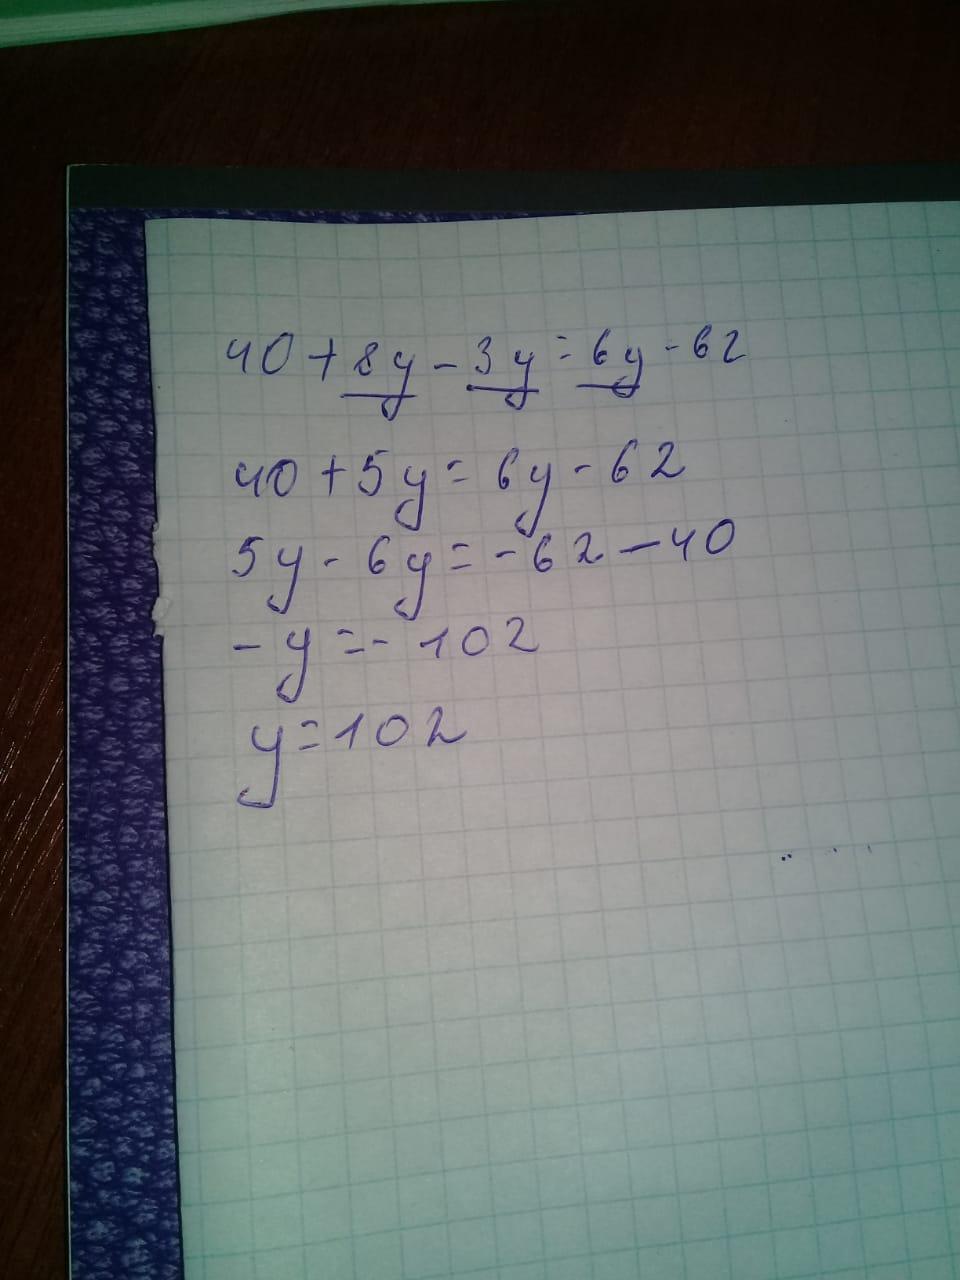 40+8y-3y=6y-62
40+5y=6y-62
5y-6y=-62-40
-y=-102
y=102